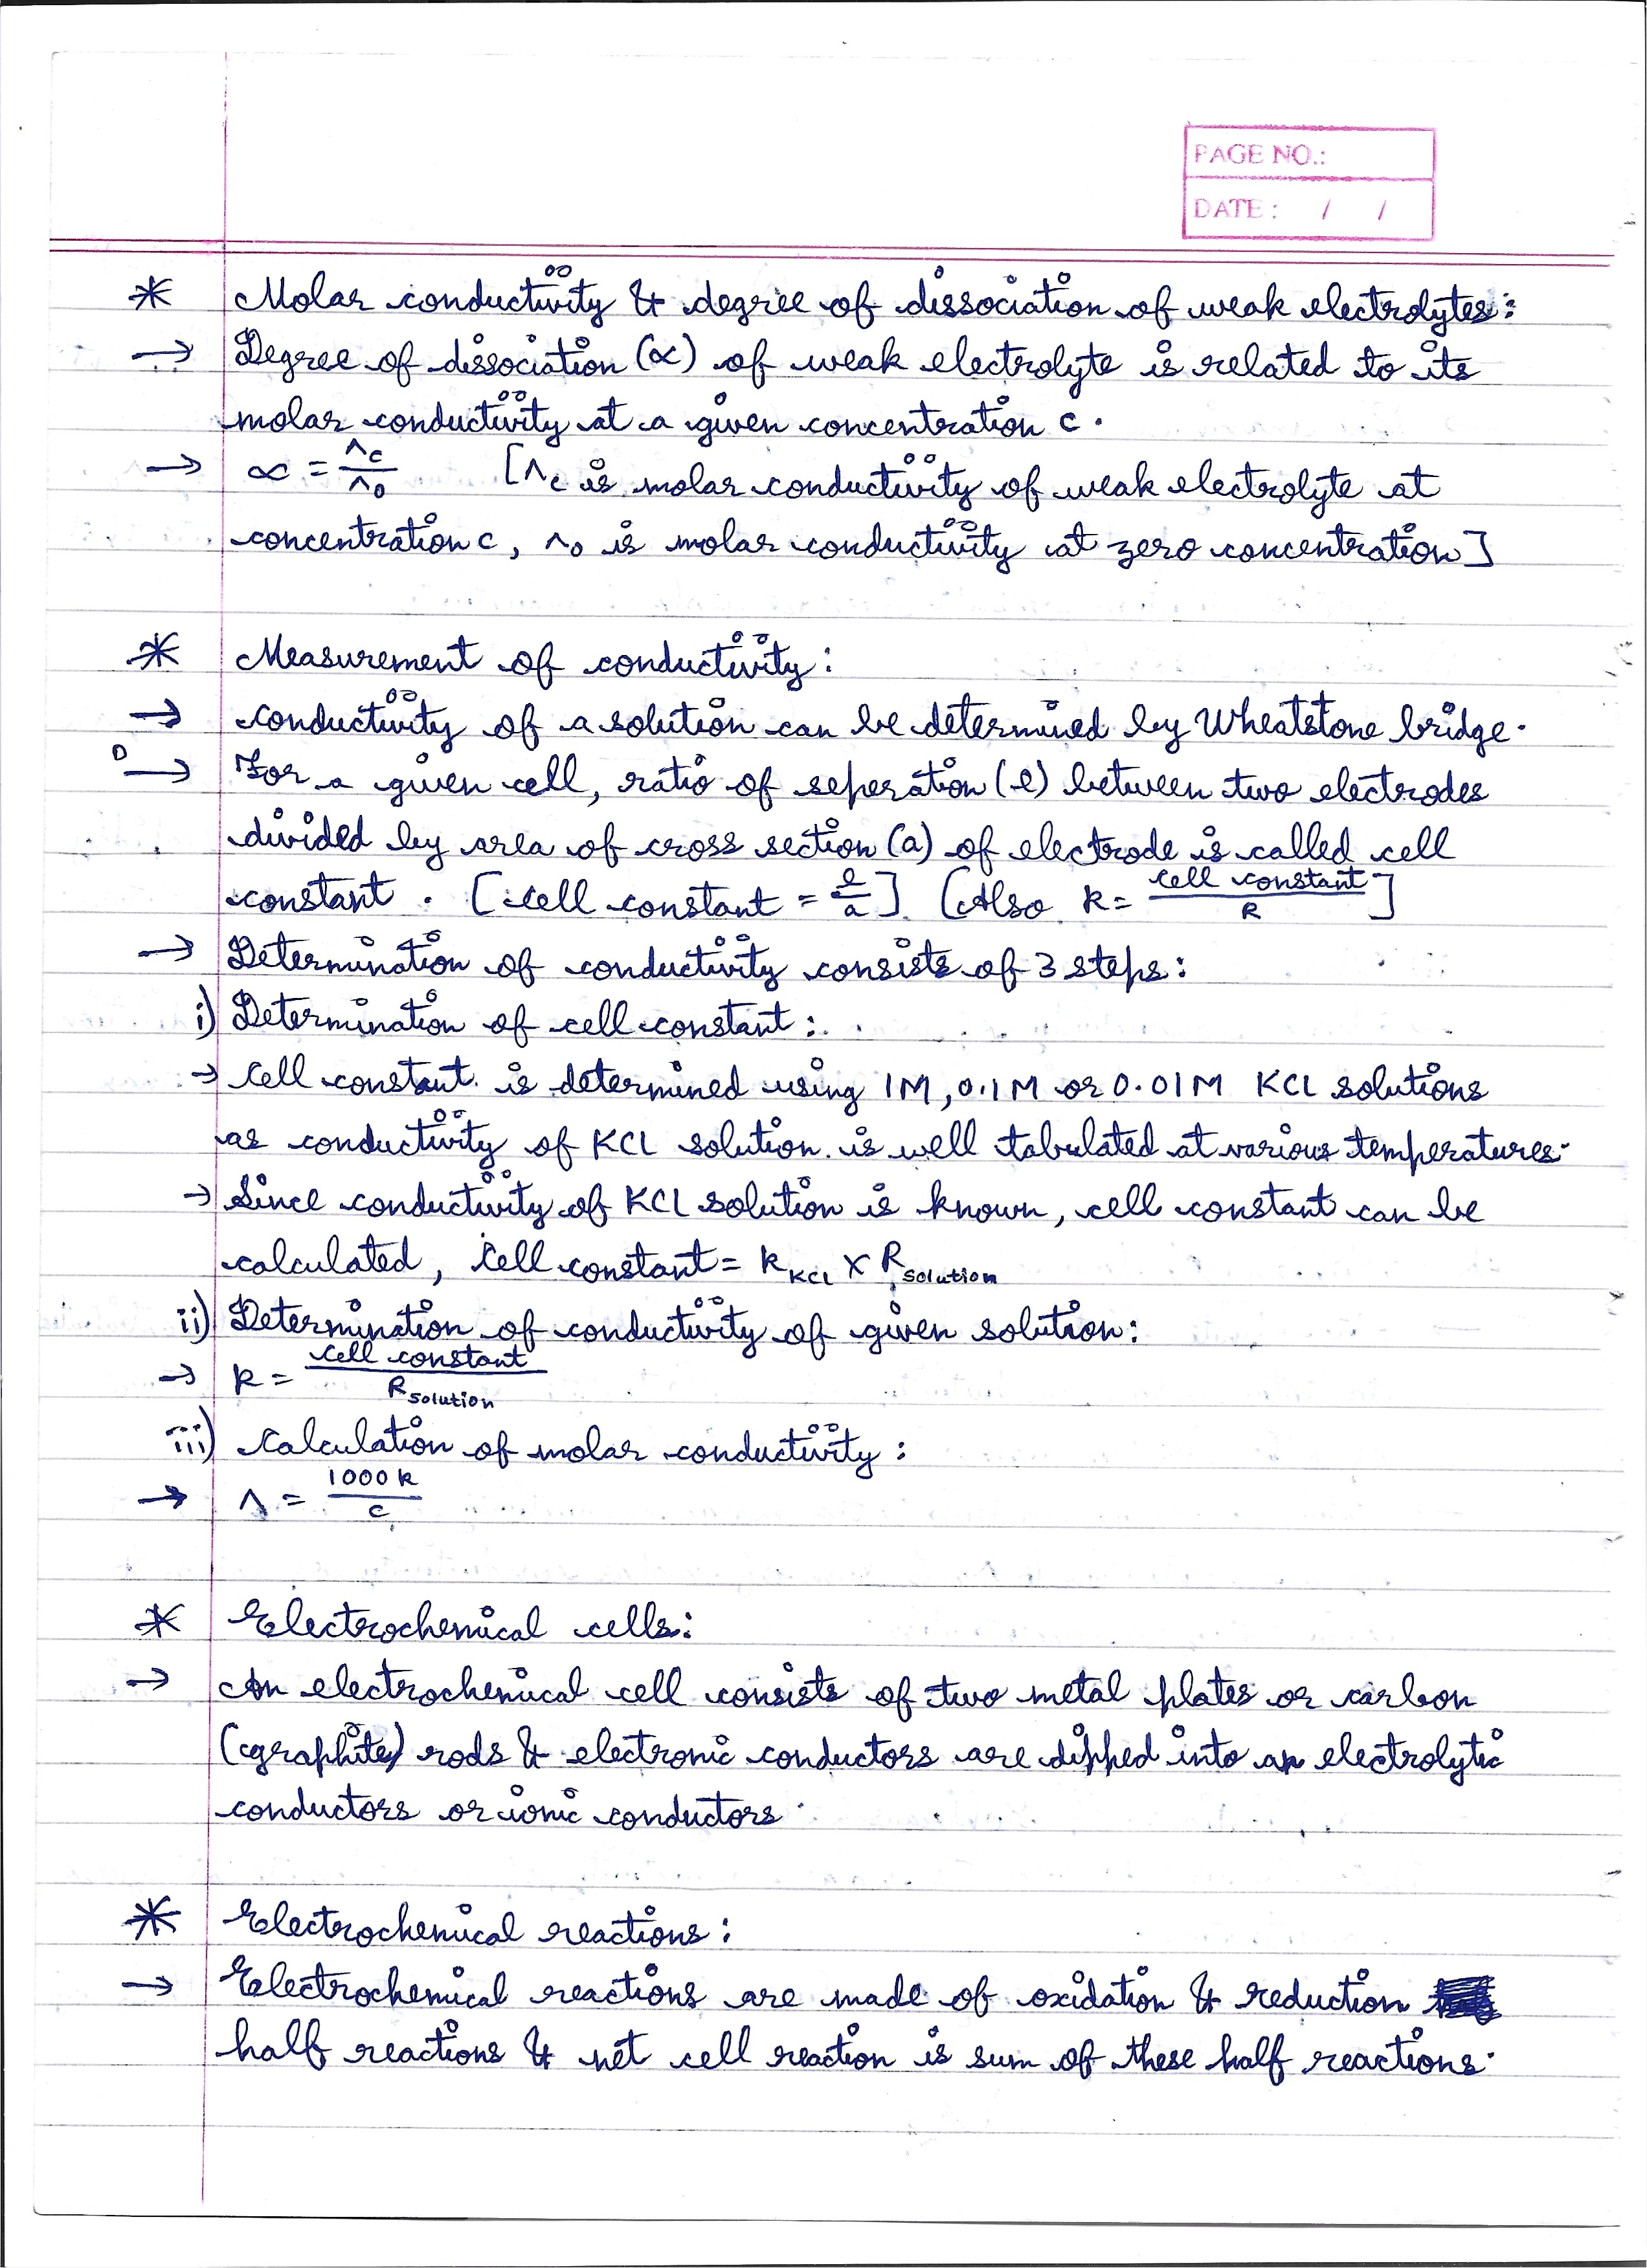 PAGE NO.:
DATE : / /
* Molar conductivity & degree of dissociation of weak electrolytes:
→ Degree of dissociation (∝) of weak electrolyte is related to its
molar conductivity at a given concentration c.
→ ∝ = ^c/^0 [^c is molar conductivity of weak electrolyte at
concentration c, ^0 is molar conductivity at zero concentration]
* Measurement of conductivity:
→ conductivity of a solution can be determined by Wheatstone bridge.
D → For a given cell, ratio of seperation (l) between two electrodes
divided by area of cross section (a) of electrode is called cell
constant. [cell constant = l/a] [Also k = cell constant/R]
→ Determination of conductivity consists of 3 steps:
i) Determination of cell constant:
→ Cell constant is determined using 1M, 0.1M or 0.01M KCl solutions
as conductivity of KCl solution is well tabulated at various temperatures.
→ Since conductivity of KCl solution is known, cell constant can be
calculated, Cell constant = k KCl × R solution
ii) Determination of conductivity of given solution:
→ k = cell constant/R solution
iii) Calculation of molar conductivity:
→ ^ = 1000 k/c
* Electrochemical cells:
→ An electrochemical cell consists of two metal plates or carbon
(graphite) rods & electronic conductors are dipped into an electrolytic
conductors or ionic conductors.
* Electrochemical reactions:
→ Electrochemical reactions are made of oxidation & reduction
half reactions & net cell reaction is sum of these half reactions.